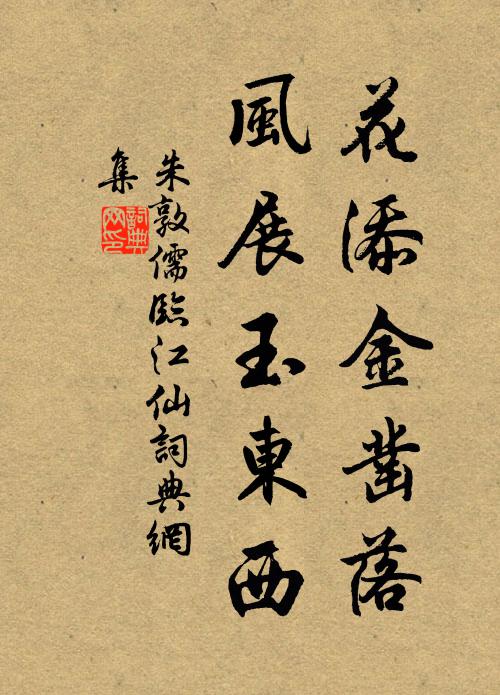 花添金鑿落
風展玉東西
朱敦儒臨江仙詞典網
集
詞典网印